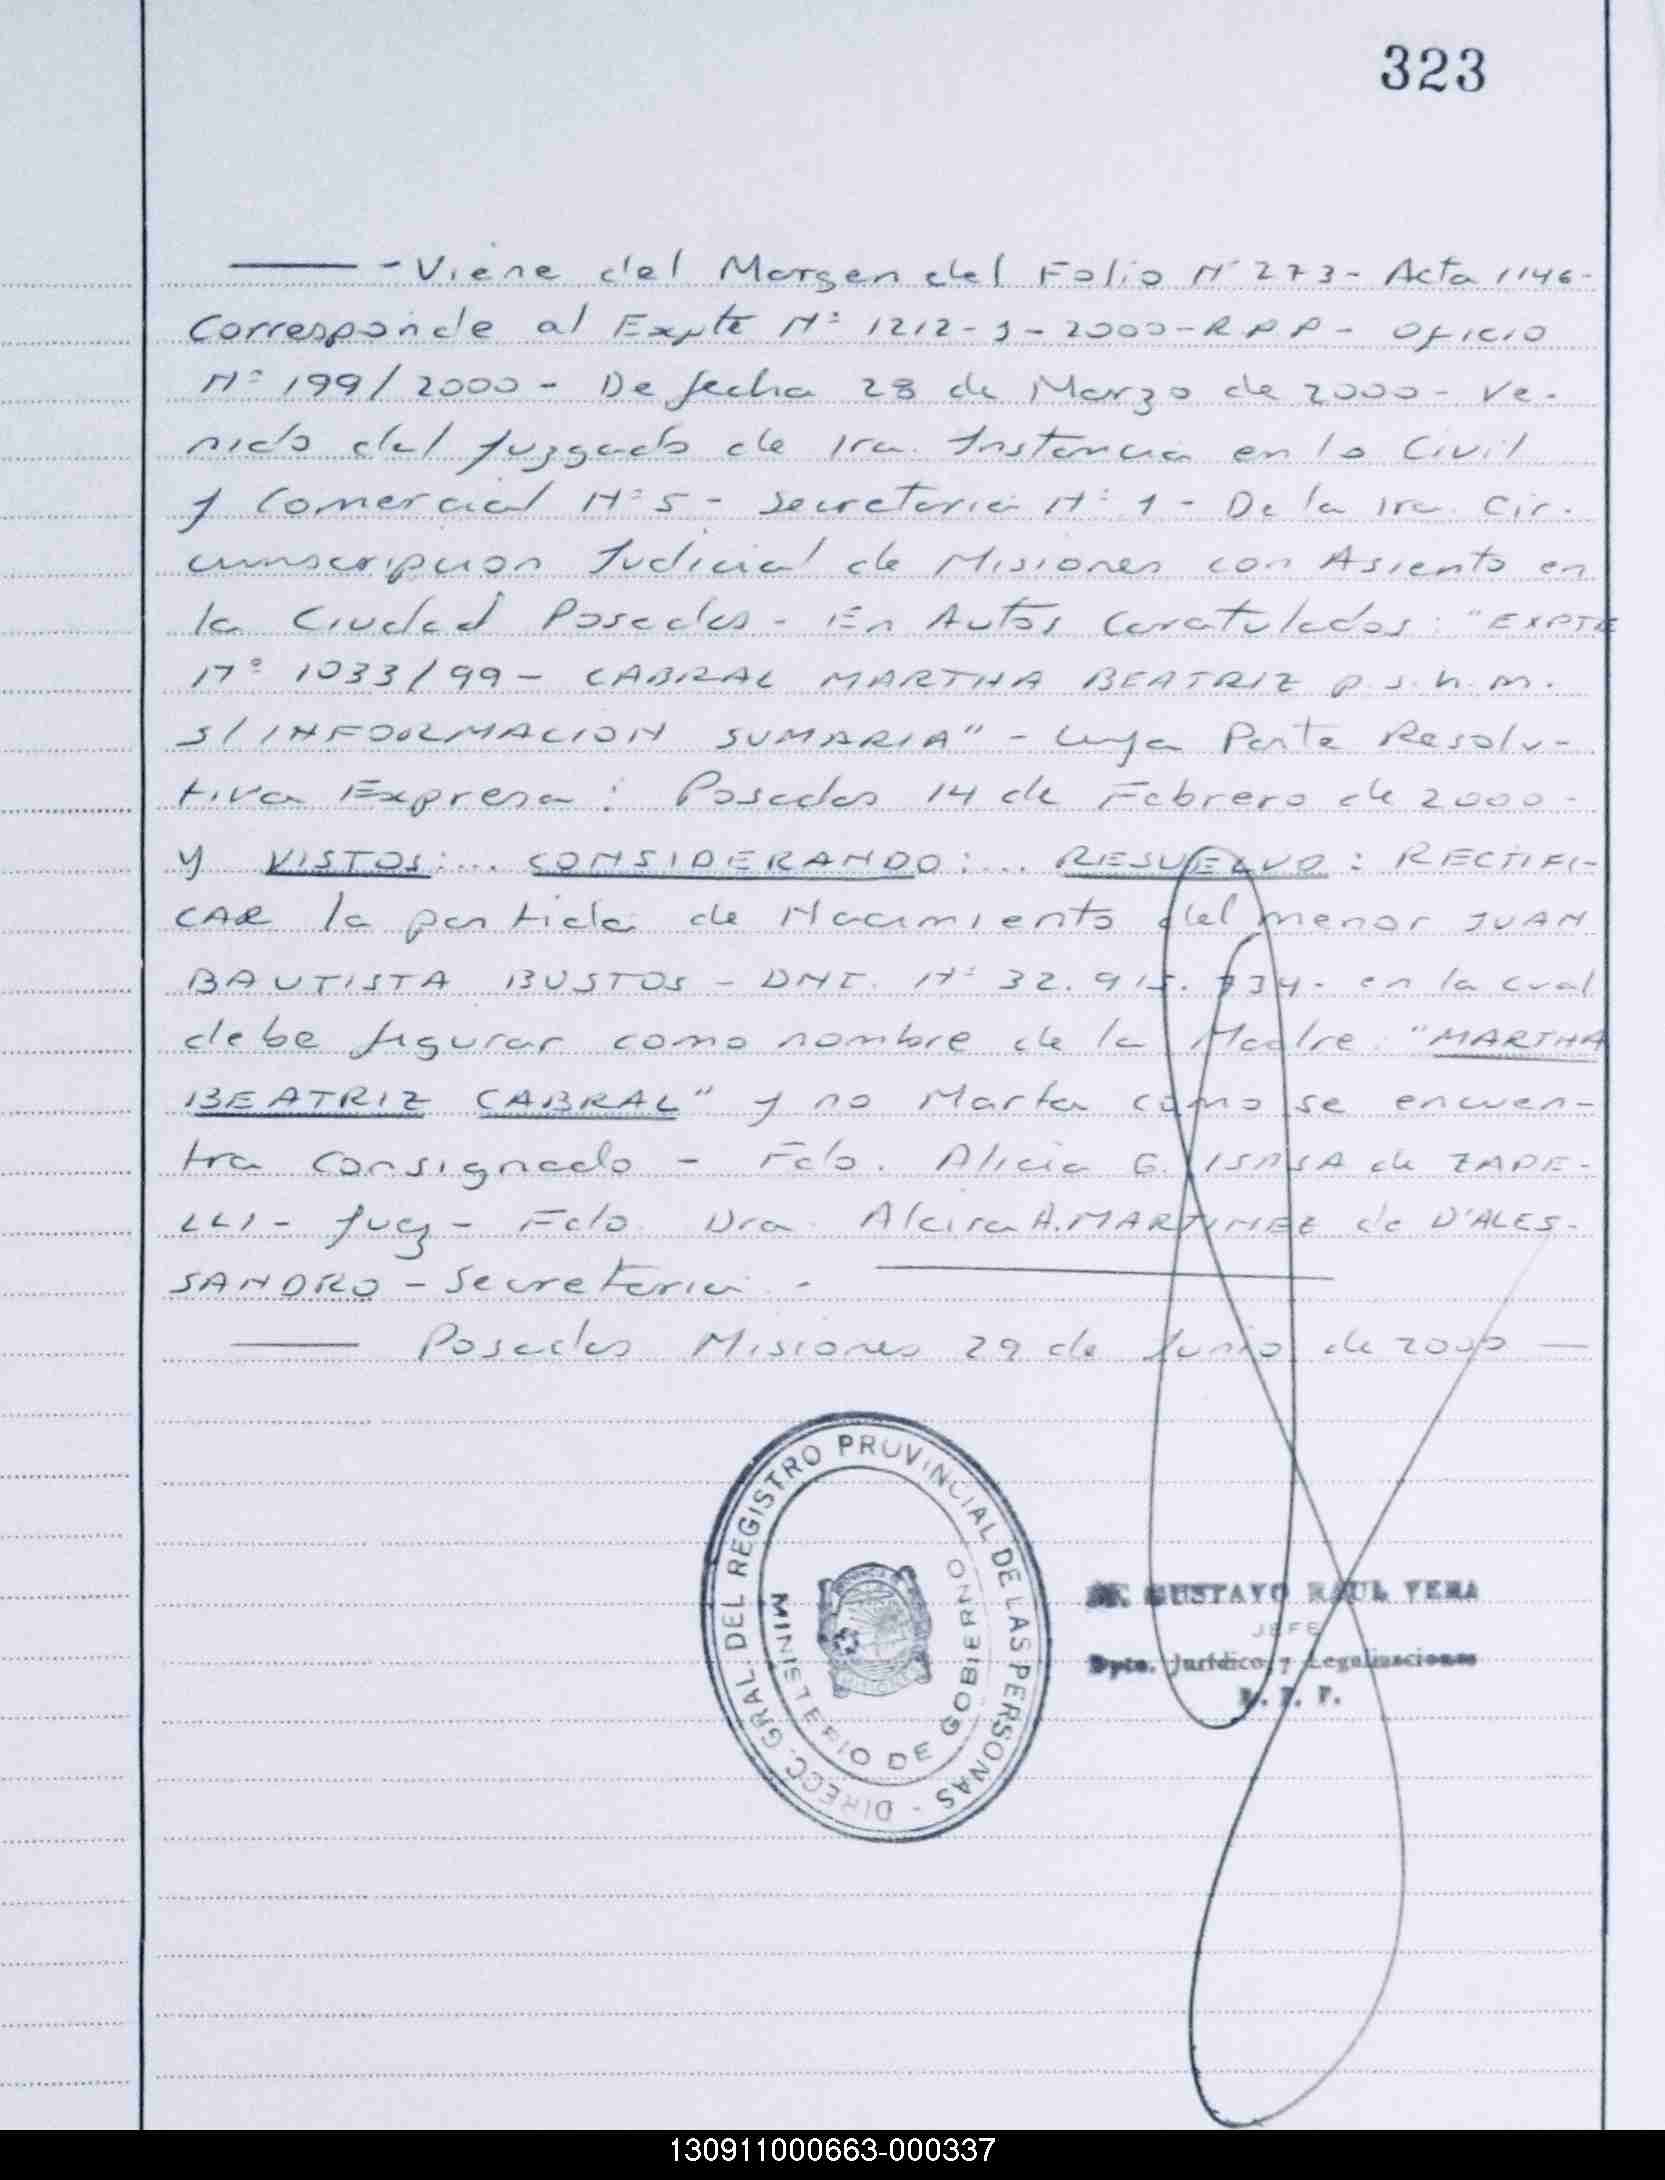 323
- Viene del Margen del Folio Nº 273 - Acta 1146 -
Corresponde al Expte Nº 1212-J-2000-RPP- Oficio
Nº 199/2000 - De fecha 28 de Marzo de 2000 - Ve-
nido del Juzgado de 1ra. Instancia en lo Civil
y Comercial Nº 5 - Secretaria Nº 1 - De la 1ra. Cir-
cunscripcion Judicial de Misiones con Asiento en
la Ciudad Posadas - En Autos Caratulados: "EXPTE
Nº 1033/99 - CABRAL MARTHA BEATRIZ p.s.h.m.
S/ INFORMACION SUMARIA" - Cuya Parte Resolu-
tiva Expresa: Posadas 14 de Febrero de 2000 -
Y VISTOS:... CONSIDERANDO:... RESUELVO: RECTIFI-
CAR la partida de Nacimiento del menor JUAN
BAUTISTA BUSTOS - DNI. Nº 32.915.734. en la cual
debe figurar como nombre de la Madre: "MARTHA
BEATRIZ CABRAL" y no Marta como se encuen-
tra consignado - Fdo. Alicia G. ISASA de ZAPE-
LLI - Juez - Fdo. Dra. Alcira A. MARTINEZ de D'ALES-
SANDRO - Secretaria. -
Posadas Misiones 29 de Junio de 2000 —
DIRECC. GRAL. DEL REGISTRO PROVINCIAL DE LAS PERSONAS -
MINISTERIO DE GOBIERNO
GUSTAVO RAUL VERA
JEFE
Dpto. Jurídico y Legalizaciones
R. P. P.
130911000663-000337